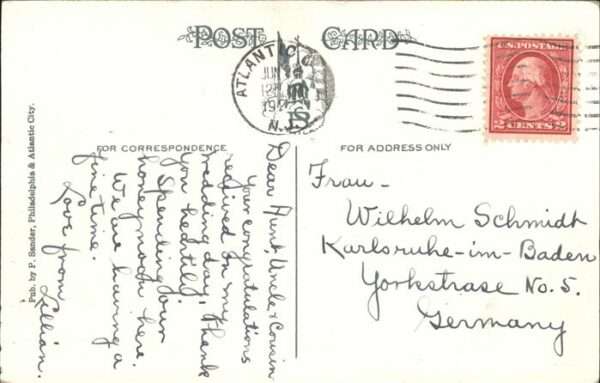 POST CARD
ATLANTIC C
JUN
12
N.J.
U.S. POSTAGE
2 CENTS 2
FOR CORRESPONDENCE
FOR ADDRESS ONLY
Pub. by P. Sander, Philadelphia & Atlantic City.
Dear Aunt, Uncle & Cousin
Your congratulations
received on my
wedding day, Thank
you heartily.
Spending our
honeymoon here.
We are having a
fine time.
Love from
Lillian.
Frau -
Wilhelm Schmidt
Karlsruhe-im-Baden
Yorkstrase No. 5.
Germany